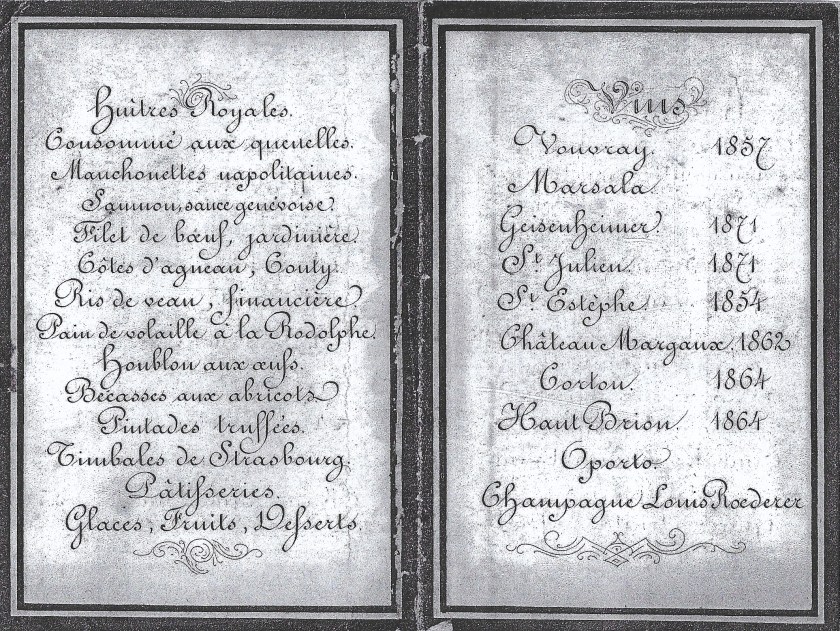 Huîtres Royales.
Consommé aux quenelles.
Manchonettes napolitaines.
Saumon, sauce genèvoise.
Filet de bœuf, jardinière.
Côtes d'agneau, Conty.
Ris de veau, financière.
Pain de volaille à la Rodolphe.
Houblon aux œufs.
Bécasses aux abricots
Pintades truffées.
Timbales de Strasbourg.
Pâtisseries.
Glaces, Fruits, Desserts.
Vins
Vouvray. 1857
Marsala
Geisenheimer. 1871
St Julien. 1871
St Estèphe. 1854
Château Margaux. 1862
Corton. 1864
Haut Brion. 1864
Oporto.
Champagne Louis Roederer